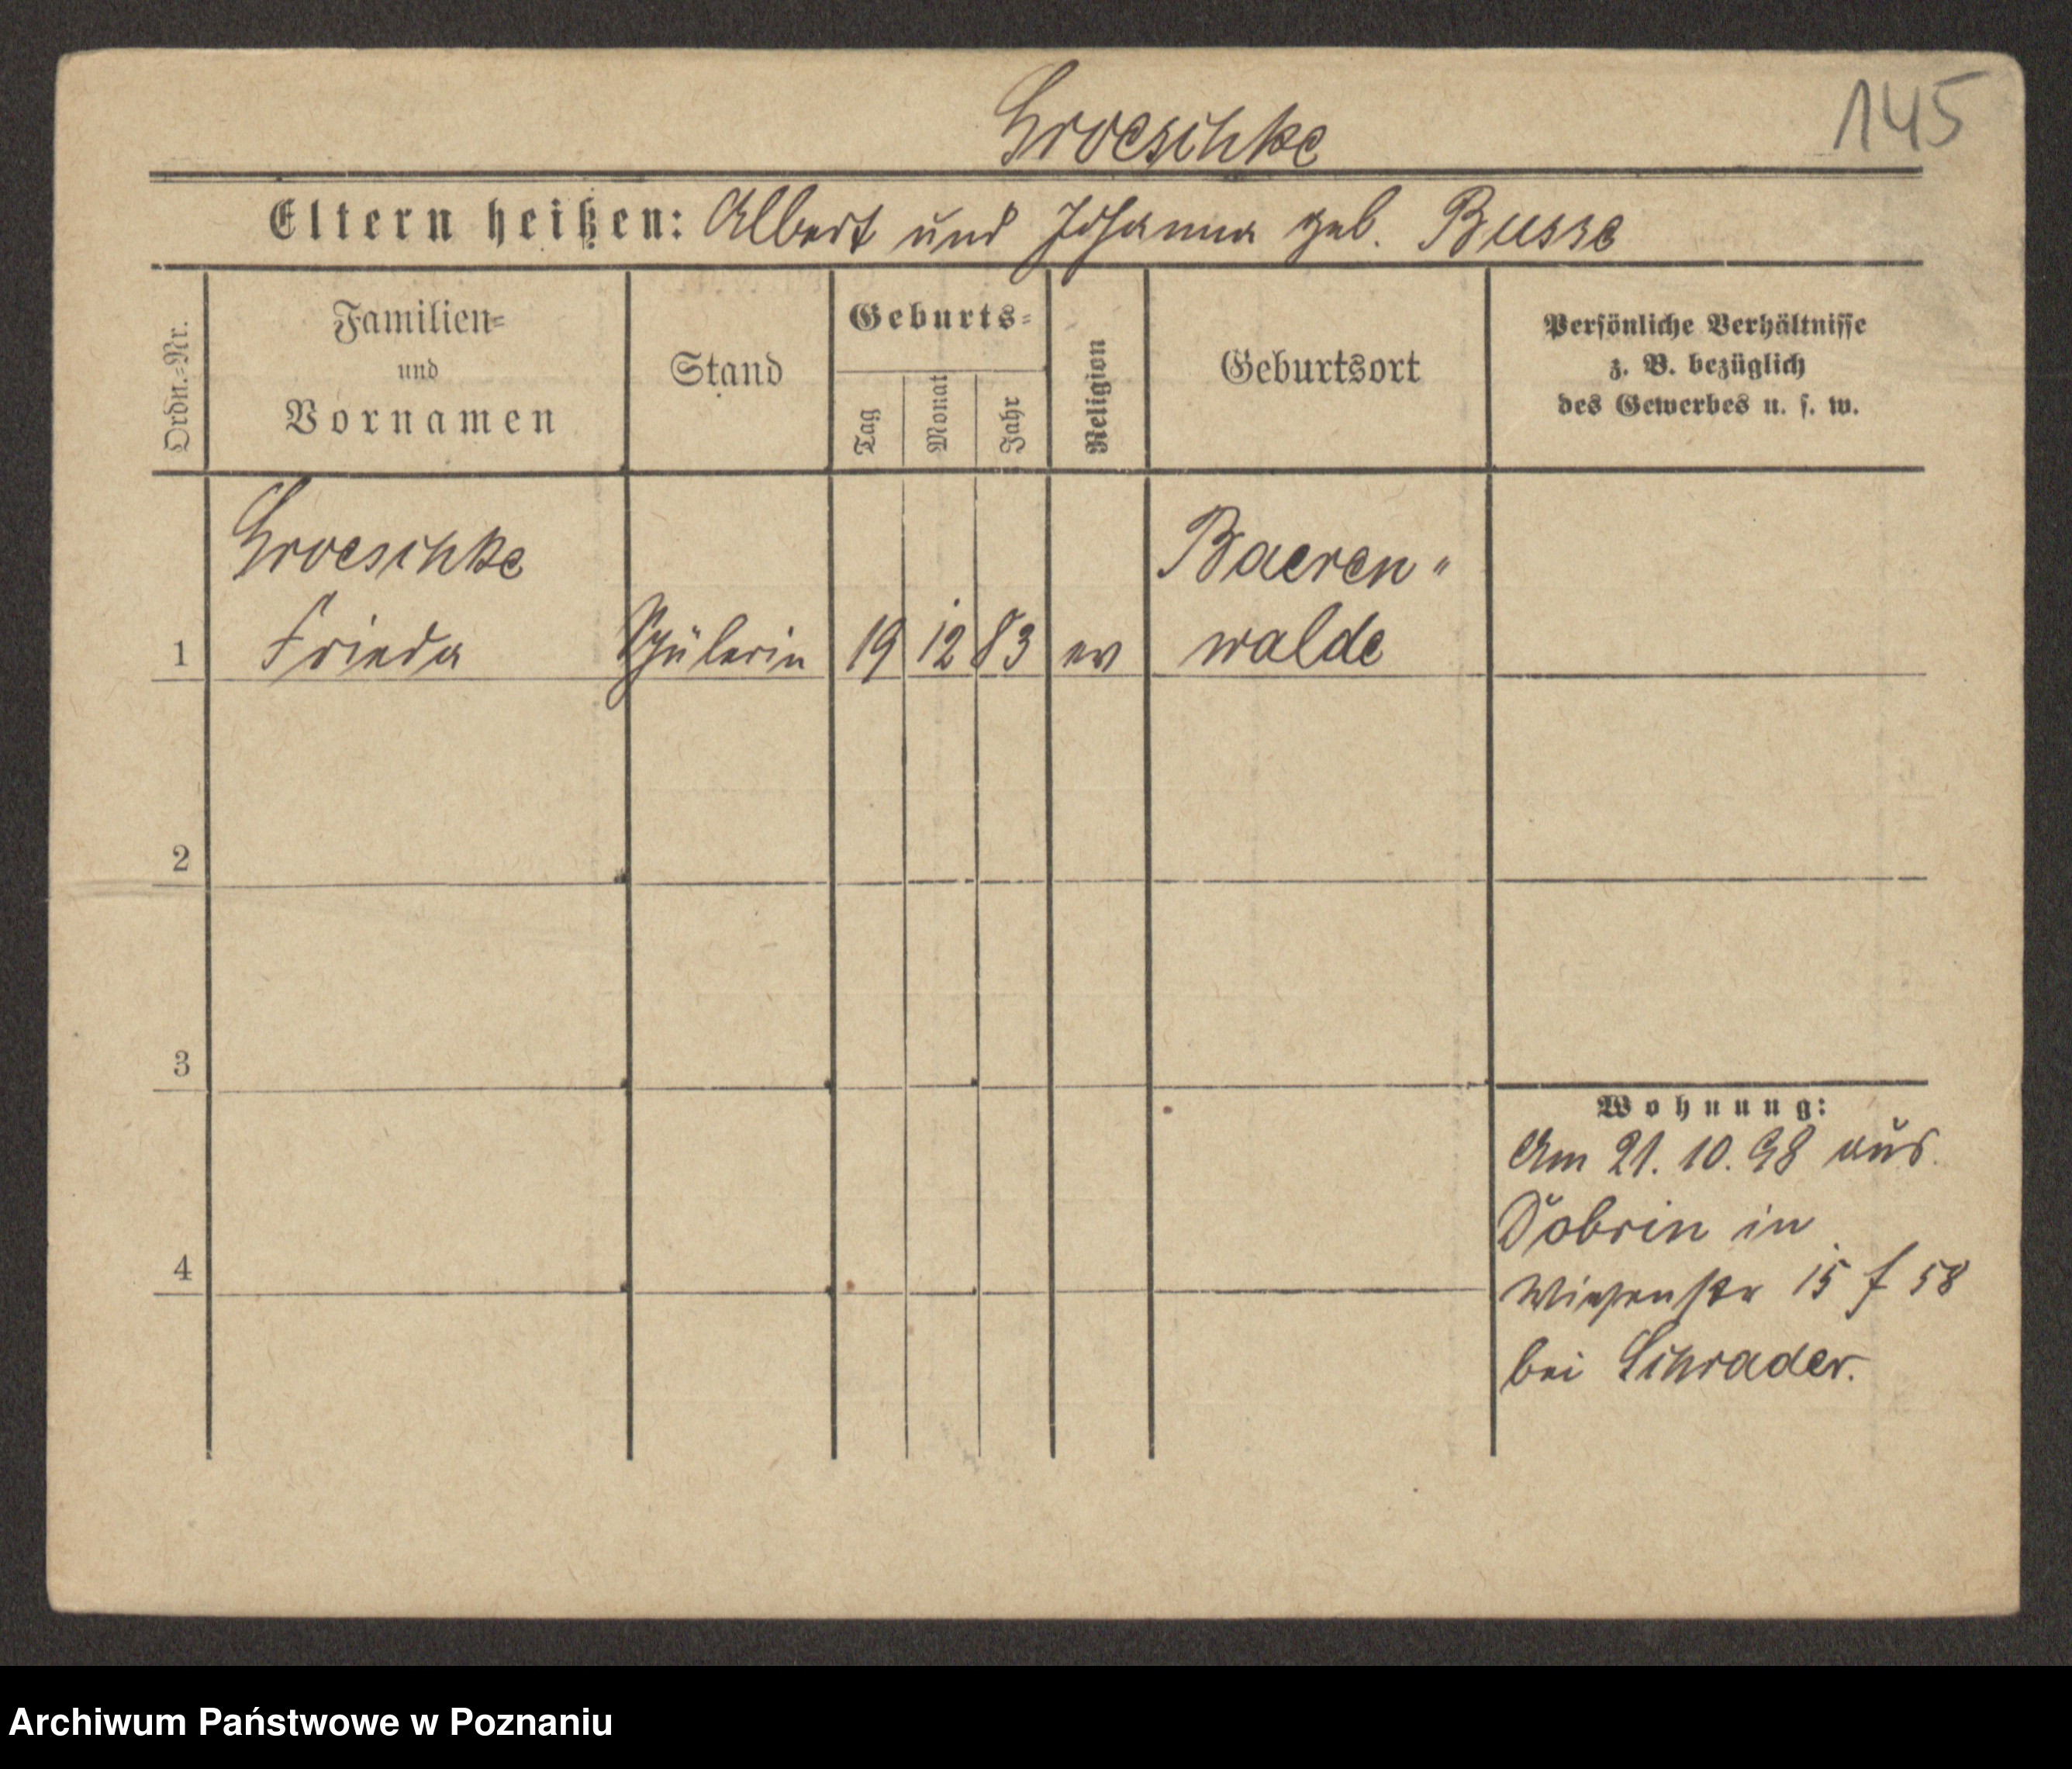 Groeschke
145
Eltern heißen: Albert und Johanna geb. Busse
Ordn.-Nr.
Familien-
und
Vornamen
Stand
Geburts-
Tag
Monat
Jahr
Religion
Geburtsort
Persönliche Verhältnisse
z. B. bezüglich
des Gewerbes u. s. w.
Groeschke
Baeren"
1 Frieda Schülerin 19 12 83 ev walde
2
3
Wohnung:
Am 21. 10. 98 aus
Dobrin in
4
Wiesenstr 15 f 58
bei Schrader.
Archiwum Państwowe w Poznaniu